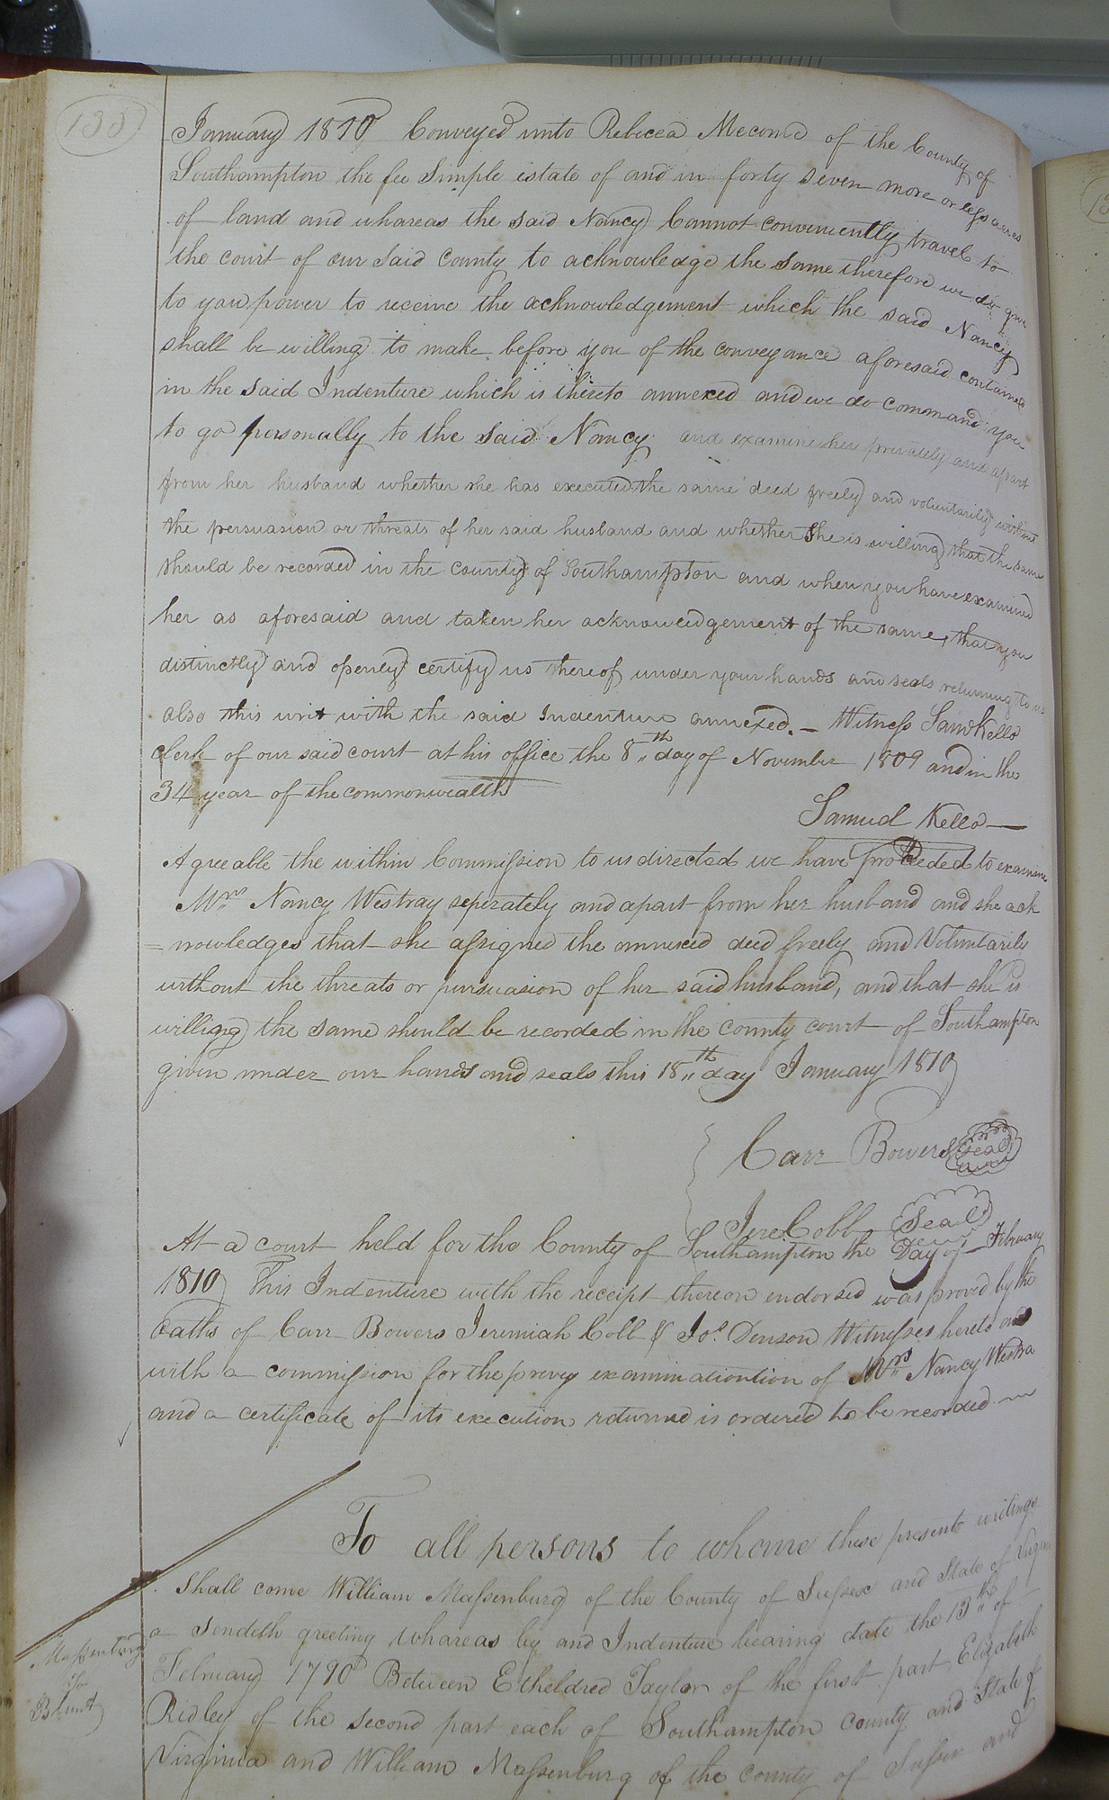 133
January 1810 Conveyed unto Rebecca Mecome of the County of
Southampton the fee Simple estate of and in forty seven more or less acres
of land and whareas the said Nancy Cannot conveniently travel to
the court of our said county to acknowledge the same therefore we do give
to you power to receive the acknowledgement which the said Nancy
shall be willing to make before you of the conveyance aforesaid contained
in the said Indenture which is thereto annexed and we do command you
to go personally to the said Nancy and examine her privately and apart
from her husband whether she has executed the same deed freely and voluntarily without
the persuasion or threats of her said husband and whether She is willing that the same
should be recorded in the county of Southampton and when you have examined
her as aforesaid and taken her acknowledgement of the same, that you
distinctly and openly certify us thereof under your hands and seals returning to us
also this writ with the said Indenture annexed. — Witness Saml Kello
Clerk of our said court at his office the 8th day of November 1809 and in the
34 year of the commonwealth
Samuel Kello —
Agreeable the within Commission to us directed we have proceeded to examine
Mrs Nancy Westray seperately and apart from her husband and she ack
= nowledges that she assigned the annexed deed freely and Voluntarily
without the threats or pursuasion of her said husband, and that she is
willigng the same should be recorded in the county court of Southampton
given under our hands and seals this 18th day January 1810
Carr Bowers Seal
Jere Cobb Seal
At a court held for the County of Southampton the Day of February
1810 This Indenture with the receipt thereon endorsed was proved by the
Oaths of Carr Bowers Jeremiah Cobb & Jos. Denson Witnesses hereto and
with a commission for the privey examinationtion of Mrs Nancy Westra
and a certificate of its execution returned is ordered to be recorded
To all persons to whome these presents writings
shall come William Massenburg of the County of Sussex and State of Virgini
a sendeth greeting whareas by and Indenture bearing date the 13th of
February 1790 Between Etheldred Taylor of the first part Elizabeth
Ridley of the second part each of Southampton county and State of
Virginia and William Massenburg of the county of Sussex and
Massenburg
To
Blunt